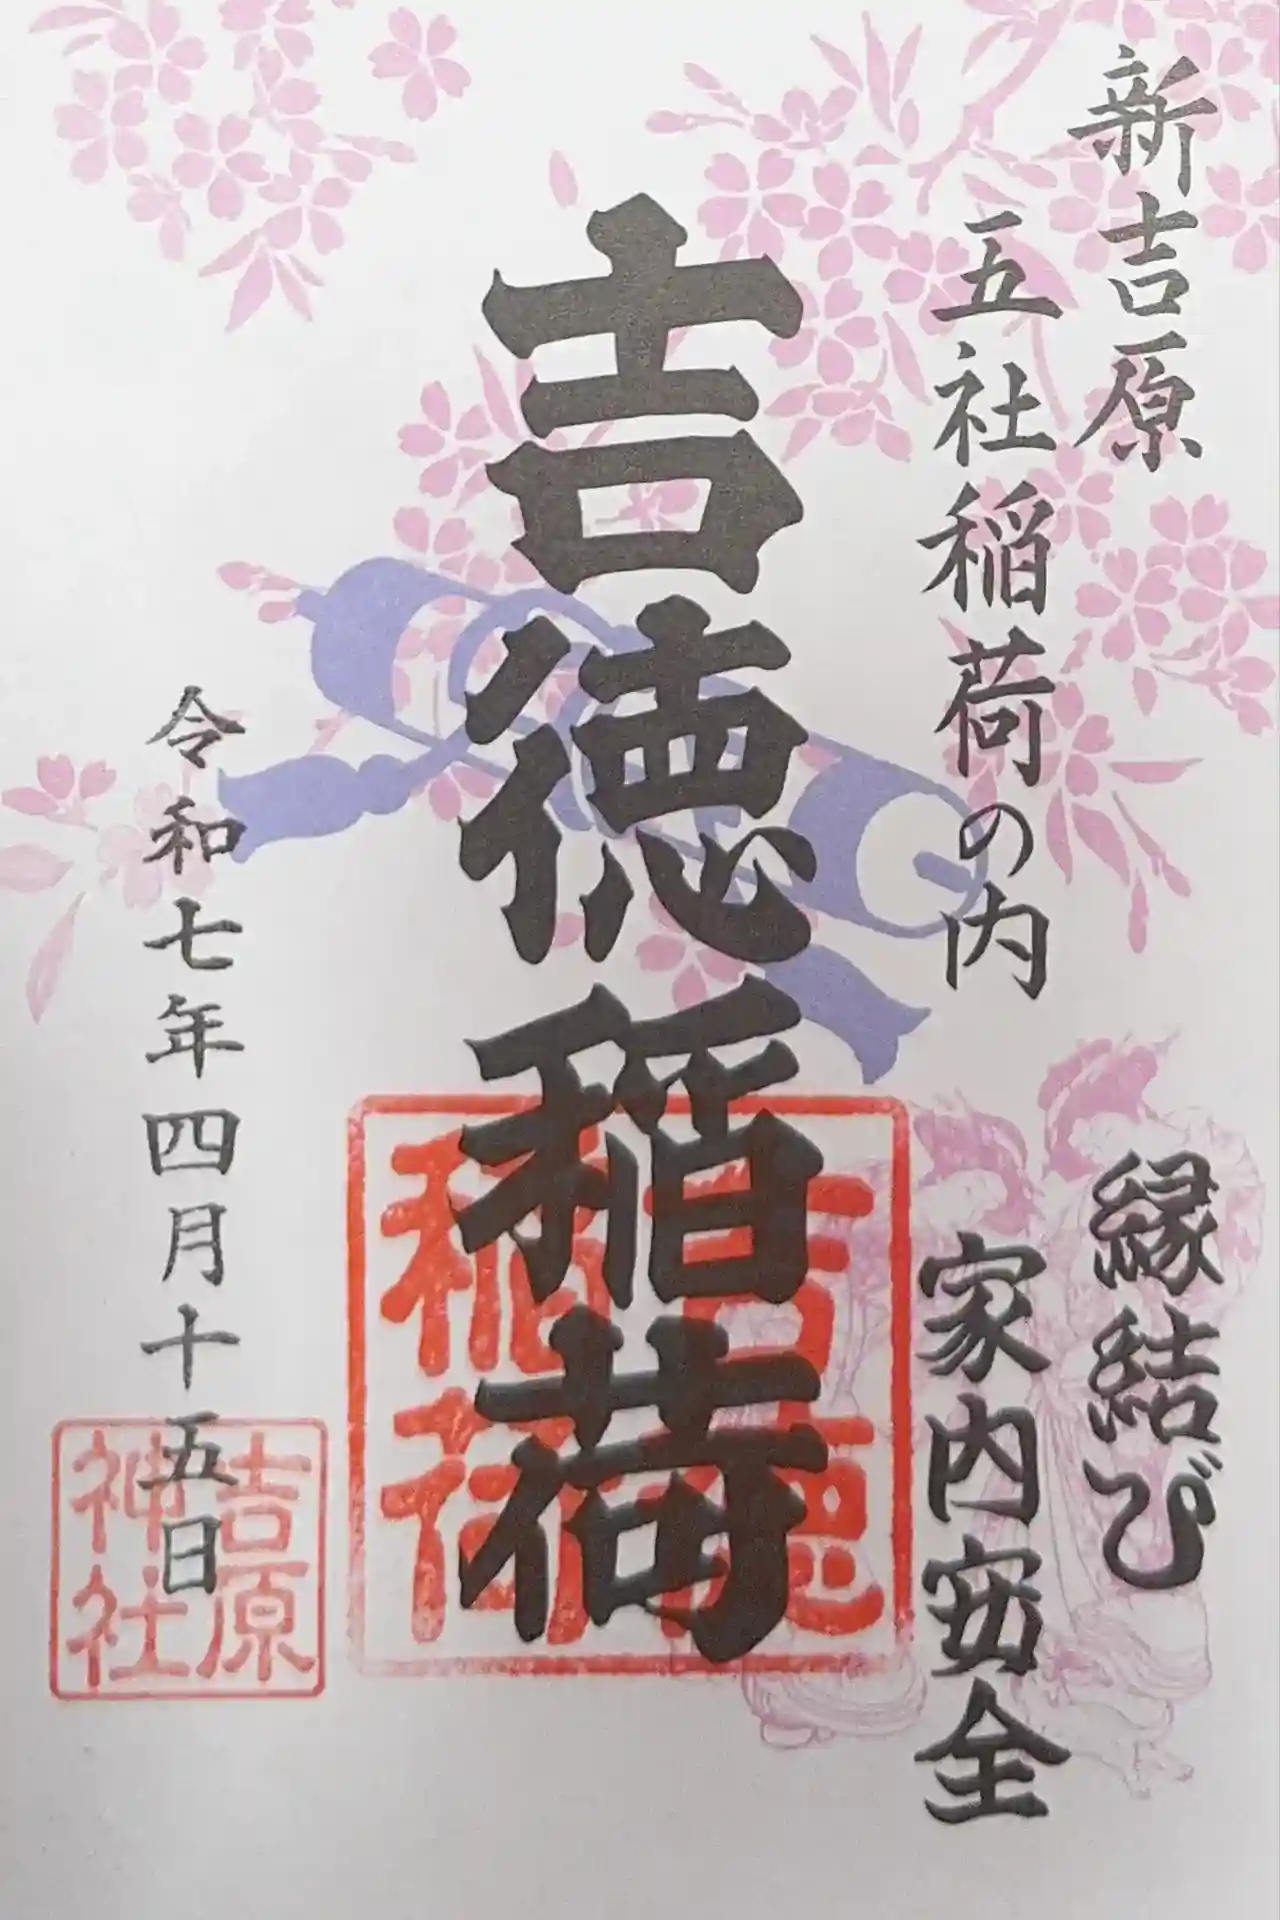 新吉原
五社稲荷の内
縁結び
家内安全
吉徳稲荷
吉徳
稲荷
令和七年四月十五日
吉原
神社